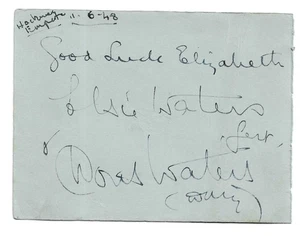 Hackney
Empire 11.6-48
Good Luck Elizabeth
Elsie Waters
Gert
&
Doris Waters
(Daisy)